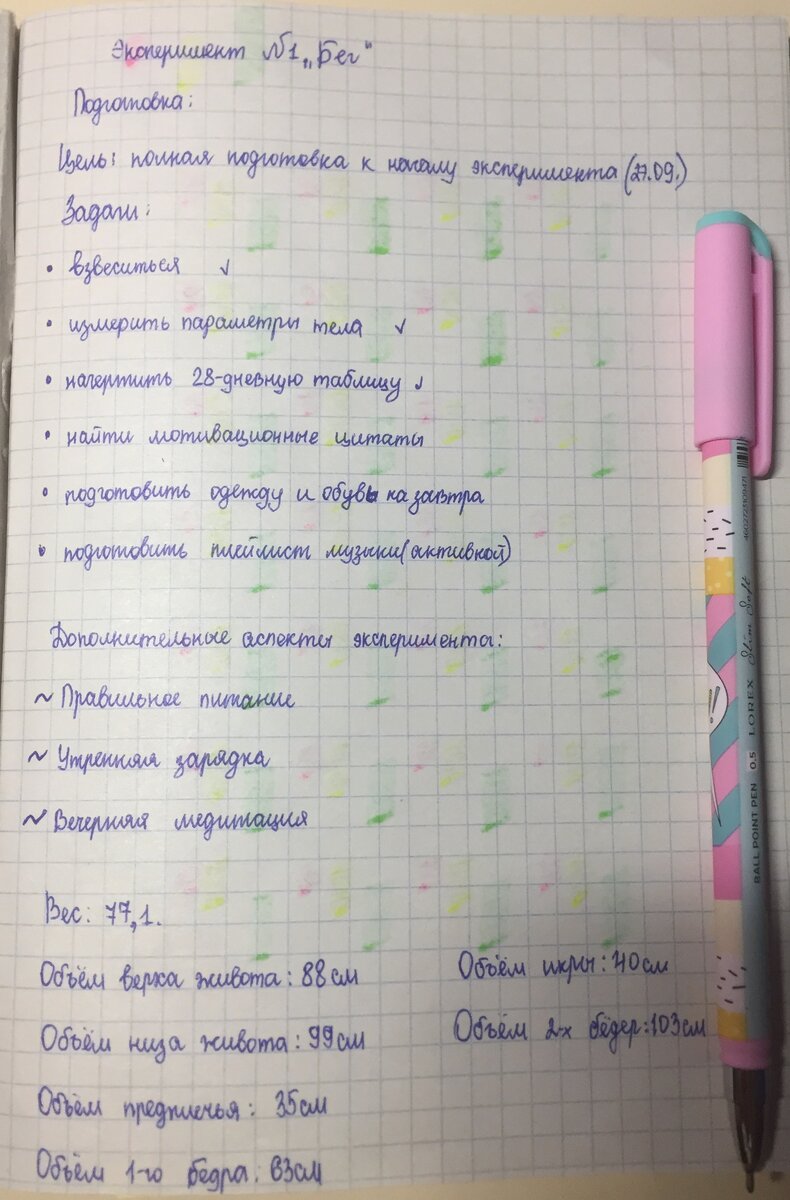 Эксперимент №1 „Бег"
Подготовка:
Цель: полная подготовка к началу эксперимента (27.09.)
Задачи:
• взвеситься ✓
• измерить параметры тела ✓
• начертить 28-дневную таблицу ✓
• найти мотивационные цитаты
• подготовить одежду и обувь на завтра
• подготовить плейлист музыки (активной)
Дополнительные аспекты эксперимента:
~ Правильное питание
~ Утренняя зарядка
~ Вечерняя медитация
Вес: 77,1.
Объём верха живота: 88 см
Объём низа живота: 99 см
Объём предплечья: 35 см
Объём 1-го бедра: 63 см
Объём икры: 40 см
Объём 2-х бёдер: 103 см
BALL POINT PEN 0.5 LOREX Slim Soft